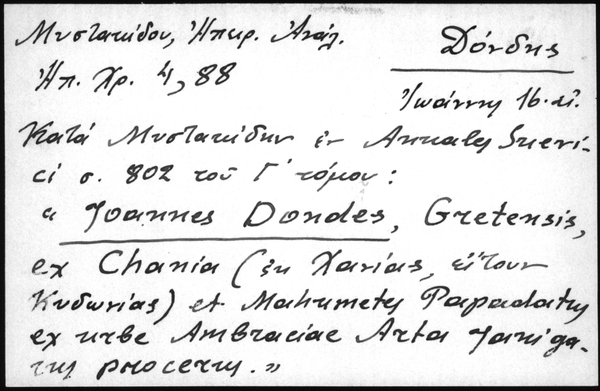 Μυστακίδου, Ἠπειρ. Ἀνάλ.
Δόνδης
Ἠπ. Χρ. 4, 88
Ἰωάννης 16. αἰ.
Κατά Μυστακίδην ἐν Annales Sueri-
ci σ. 802 τοῦ Γ΄ τόμου :
« Joannes Dondes, Cretensis,
ex Chania (ἐκ Χανίας, εἴτουν
Κυδωνίας) et Mahumetes Papadates
ex urbe Ambraciae Arta
proceres. »